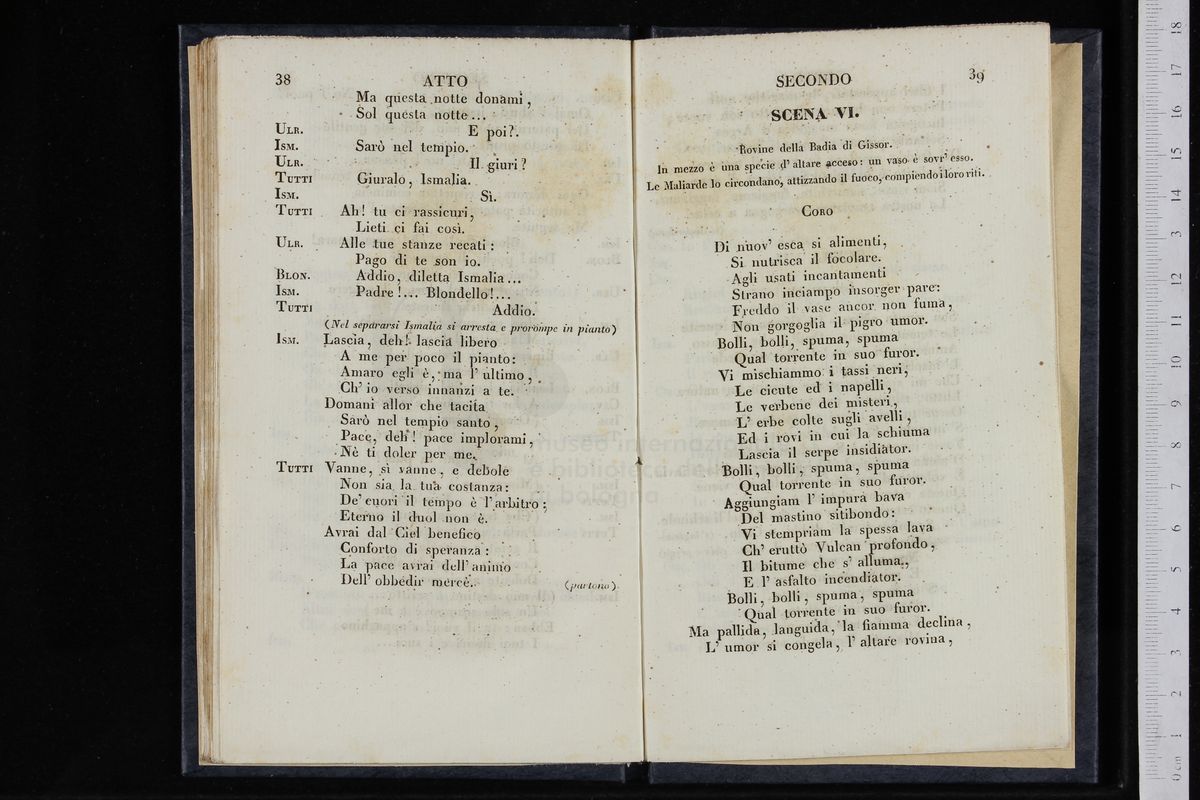 38 ATTO
Ma questa notte donami,
Sol questa notte...
ULR. E poi?.
ISM. Sarò nel tempio.
ULR. Il giuri?
TUTTI Giuralo, Ismalia.
ISM. Sì.
TUTTI Ah! tu ci rassicuri,
Lieti ci fai così.
ULR. Alle tue stanze recati:
Pago di te son io.
BLON. Addio, diletta Ismalia...
ISM. Padre!... Blondello!...
TUTTI Addio.
(Nel separarsi Ismalia si arresta e prorompe in pianto)
ISM. Lascia, deh! lascia libero
A me per poco il pianto:
Amaro egli è, ma l' ultimo,
Ch' io verso innanzi a te.
Domani allor che tacita
Sarò nel tempio santo,
Pace, deh! pace implorami,
Nè ti doler per me.
TUTTI Vanne, sì vanne, e debole
Non sia la tua costanza:
De' cuori il tempo è l' arbitro;
Eterno il duol non è.
Avrai dal Ciel benefico
Conforto di speranza:
La pace avrai dell' animo
Dell' obbedir mercè. (partono)
SECONDO 39
SCENA VI.
Rovine della Badia di Gissor.
In mezzo è una specie d' altare acceso: un vaso è sovr' esso.
Le Maliarde lo circondano, attizzando il fuoco, compiendo i loro riti.
CORO
Di nuov' esca si alimenti,
Si nutrisca il focolare.
Agli usati incantamenti
Strano inciampo insorger pare:
Freddo il vase ancor non fuma,
Non gorgoglia il pigro umor.
Bolli, bolli, spuma, spuma
Qual torrente in suo furor.
Vi mischiammo i tassi neri,
Le cicute ed i napelli,
Le verbene dei misteri,
L' erbe colte sugli avelli,
Ed i rovi in cui la schiuma
Lascia il serpe insidiator.
Bolli, bolli, spuma, spuma
Qual torrente in suo furor.
Aggiungiam l' impura bava
Del mastino sitibondo:
Vi stempriam la spessa lava
Ch' eruttò Vulcan profondo,
Il bitume che s' alluma,
E l' asfalto incendiator.
Bolli, bolli, spuma, spuma
Qual torrente in suo furor.
Ma pallida, languida, la fiamma declina,
L' umor si congela, l' altare rovina,
museo internazionale
e biblioteca della
di bologna
0 cm 1 2 3 4 5 6 7 8 9 10 11 12 13 14 15 16 17 18